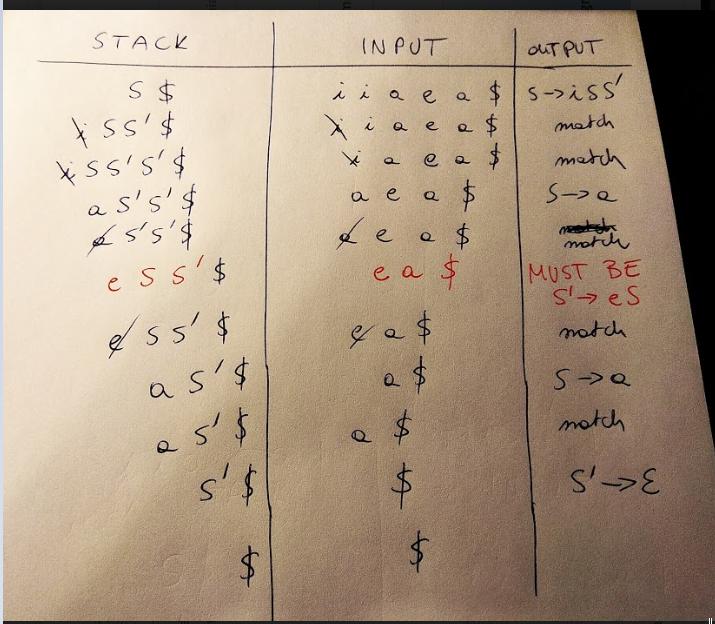 STACK INPUT OUTPUT
S $ i i a e a $ S→iSS'
i S S' $ i i a e a $ match
i S S' S' $ i a e a $ match
a S' S' $ a e a $ S→a
a S' S' $ a e a $ match
match
e S S' $ e a $ MUST BE
S'→eS
e S S' $ e a $ match
a S' $ a $ S→a
a S' $ a $ match
S' $ $ S'→ε
$ $